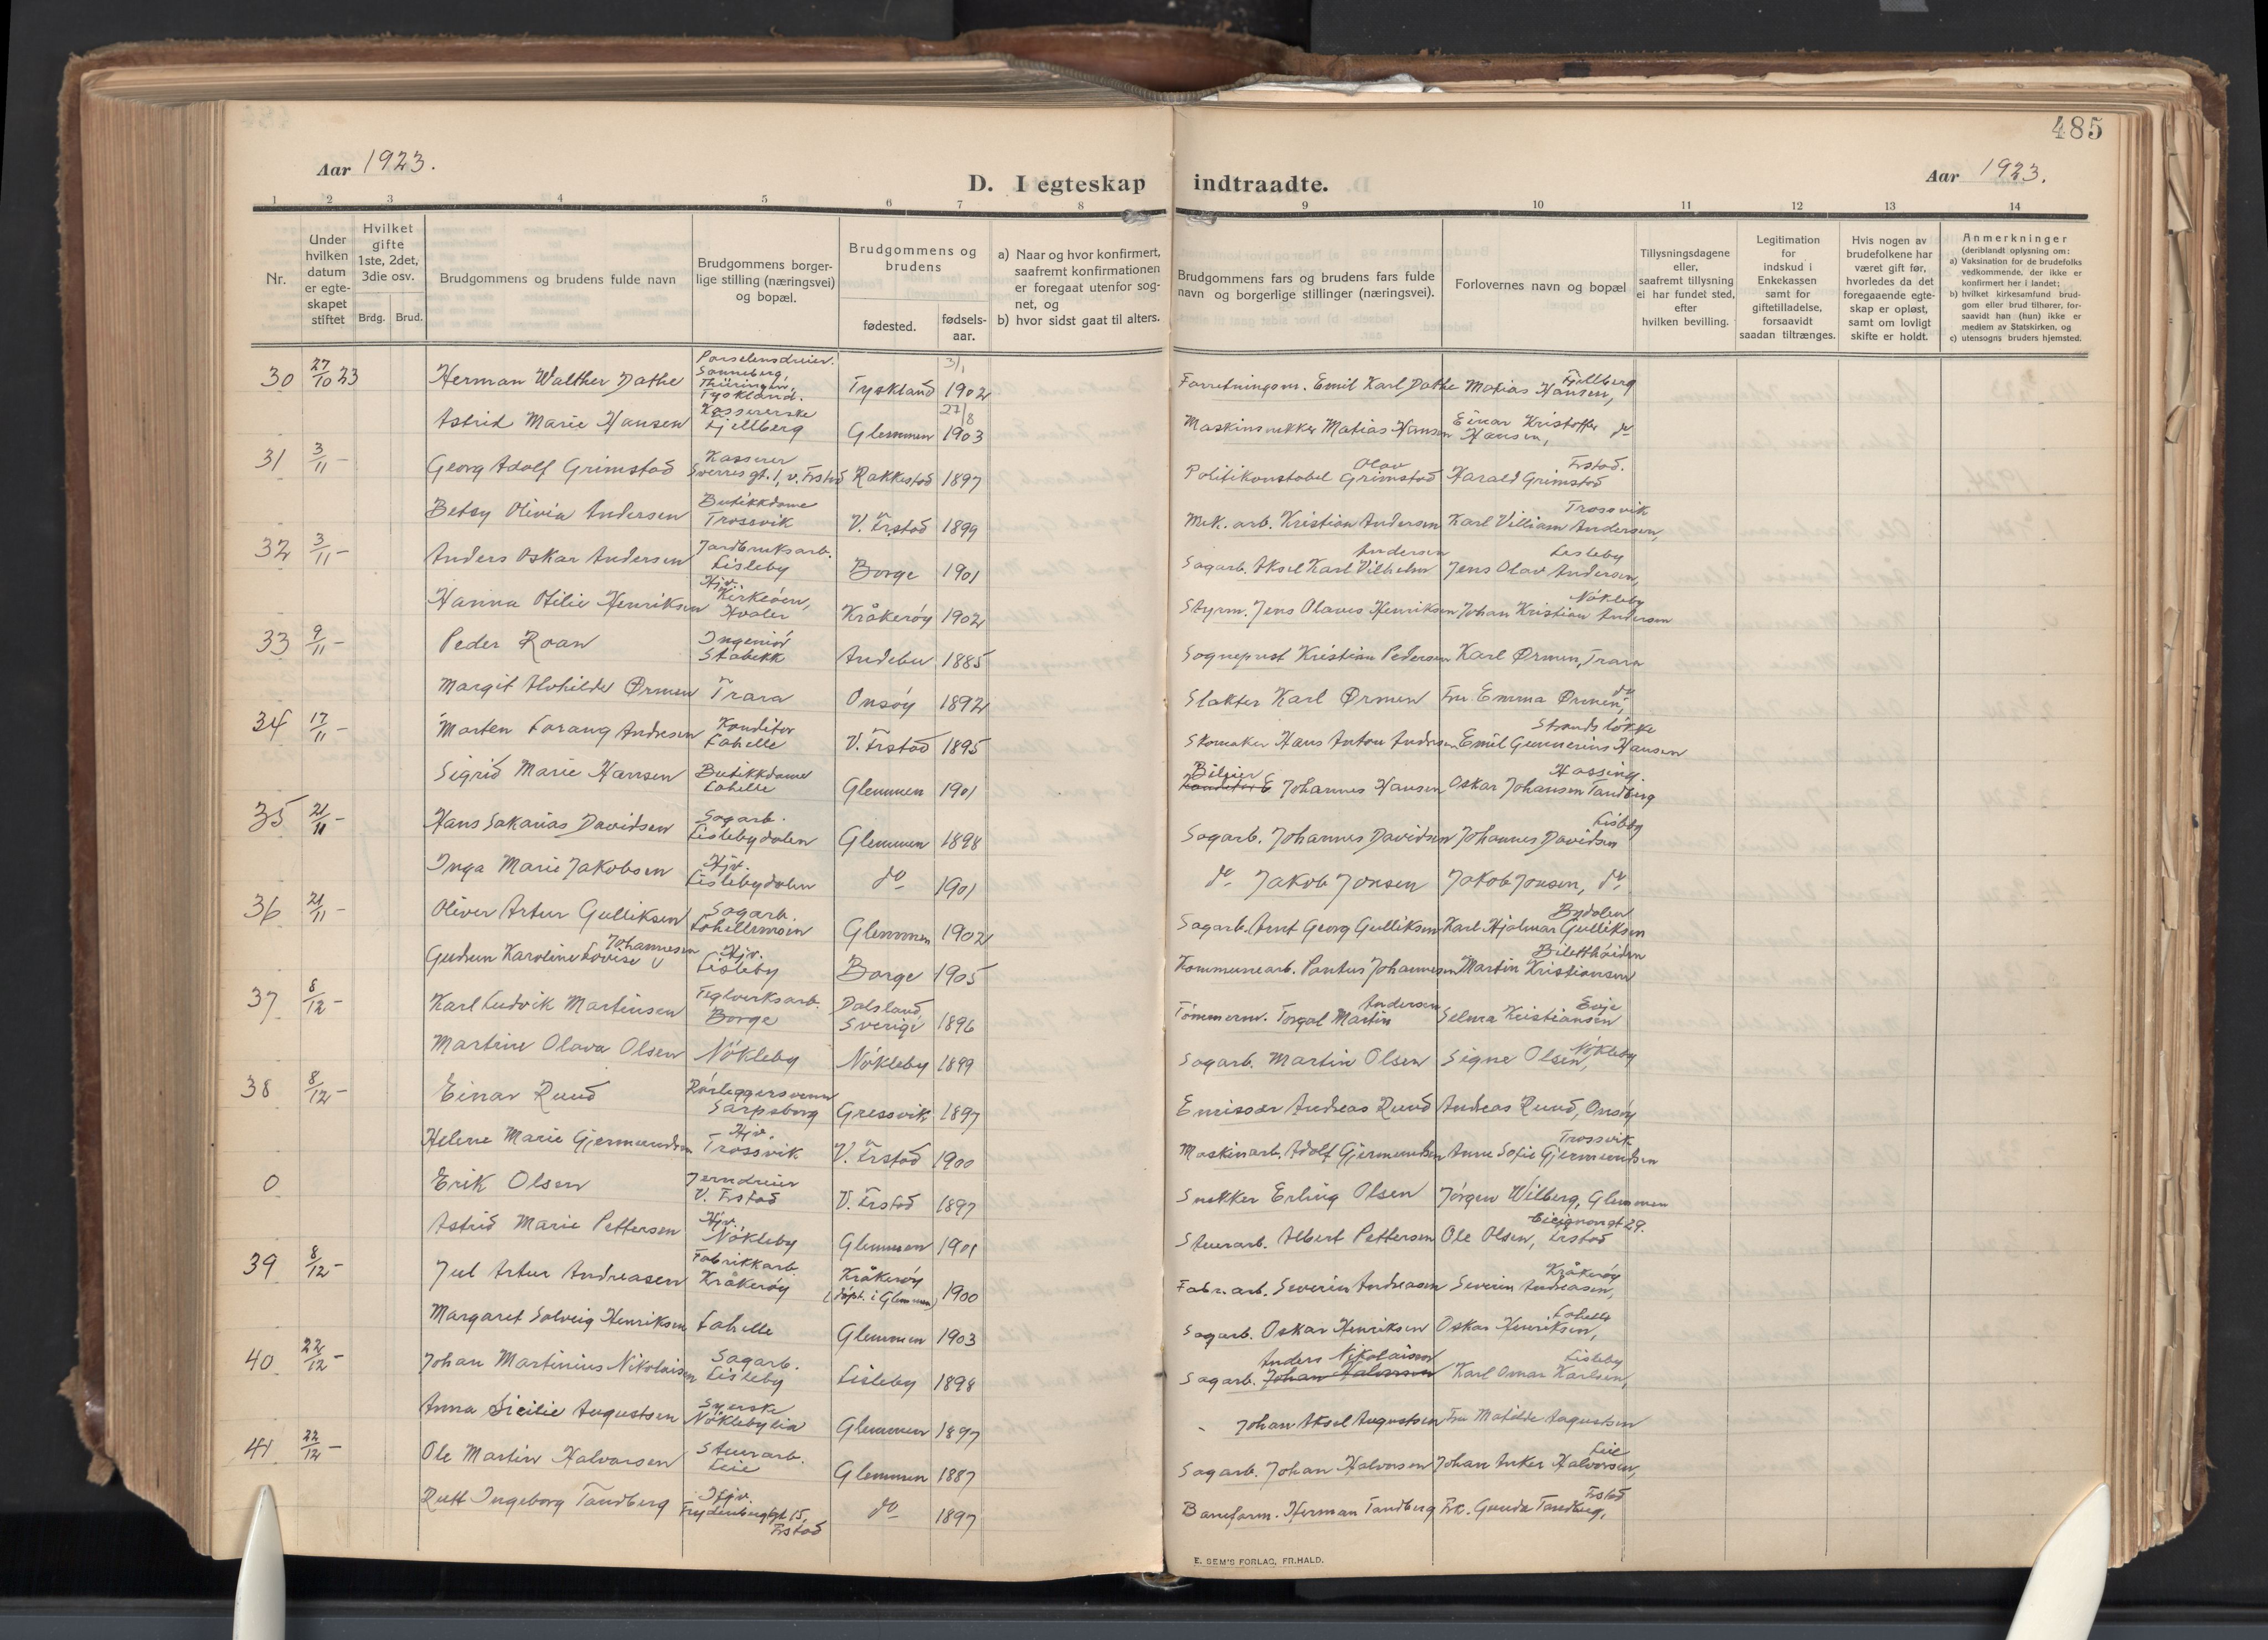 485
Aar 1923.
D. I egteskap indtraadte.
Aar 1923.
1 2 3 4 5 6 7 8 9 10 11 12 13 14
Nr.
Under hvilken datum er egte-skapet stiftet
Hvilket gifte 1ste, 2det, 3die osv.
Brdg. Brud.
Brudgommens og brudens fulde navn
Brudgommens borger-lige stilling (næringsvei) og bopæl.
Brudgommens og brudens
fødested.
fødsels-aar.
a) Naar og hvor konfirmert, saafremt konfirmationen er foregaat utenfor sog-net, og
b) hvor sidst gaat til alters.
Brudgommens fars og brudens fars fulde navn og borgerlige stillinger (næringsvei).
Forlovernes navn og bopæl
Tillysningsdagene eller, saafremt tillysning ei har fundet sted, efter hvilken bevilling.
Legitimation for indskud i Enkekassen samt for giftetilladelse, forsaavidt saadan tiltrænges.
Hvis nogen av brudefolkene har været gift før, hvorledes da det foregaaende egte-skap er opløst, samt om lovligt skifte er holdt.
Anmerkninger (deriblandt oplysning om:
a) Vaksination for de brudefolks vedkommende, der ikke er konfirmert her i landet;
b) hvilket kirkesamfund brud-gom eller brud tilhører, for-saavidt han (hun) ikke er medlem av Statskirken, og
c) utensogns bruders hjemsted.
30 27/10 23 Herman Walther Dathe Porselensdreier. Sonneberg, Thüringen, Tyskland. Tyskland 3/1 1902 Forretningsm. Emil Karl Dathe Matias Hansen, Fjellberg
Astrid Marie Hansen Kassererske Fjellberg Glemmen 27/8 1903 Maskinsnekker Matias Hansen Einar Kristoffer Hansen, do
31 3/11 - Georg Adolf Grimstad Kasserer Sverres gt. 1, v. Frstad Rakkestad 1897 Politikonstabel Olav Grimstad Harald Grimstad Frstad.
Betsy Olivia Andersen Butikkdame Trossvik V. Frstad 1899 Mek. arb. Kristian Andersen Karl Villiam Andersen, Trossvik
32 3/11 - Anders Oskar Andersen Jordbruksarb. Lisleby Borge 1901 Sagarb. Aksel Karl Vilhelm Andersen Jens Olav Andersen, Lisleby
Hanna Otilie Henriksen Hjv. Kirkeöen, Hvaler Kråkeröy 1902 Styrm. Jens Olaves Henriksen Johan Kristian Andersen Nökleby
33 9/11 - Peder Roan Ingeniör Stabekk Andebu 1885 Sogneprest Kristian Pedersen Karl Ørmen, Trara
Margit Alvhilde Ørmen Trara Onsöy 1892 Slakter Karl Ørmen Fru Emma Ørmen, do
34 17/11 - Morten Farang Andresen Konditor Lahelle V. Frstad 1895 Skomaker Hans Anton Andresen Emil Gunnerius Hansen Strandslökke
Sigrid Marie Hansen Butikkdame Lahelle Glemmen 1901 Bileier Johannes Hansen Oskar Johansen Tandberg Hassing.
35 21/11 - Hans Sakarias Davidsen Sagarb. Lislebydalen Glemmen 1898 Sagarb. Johannes Davidsen Johannes Davidsen Lisleby
Inga Marie Jakobsen Hjv. Lislebydalen do 1901 do Jakob Jonsen Jakob Jonsen, do
36 21/11 - Oliver Artur Gulliksen Sagarb. Lahellemoen Glemmen 1902 Sagarb. Arnt Georg Gulliksen Karl Hjalmar Gulliksen Bydalen
Gudrun Karoline Lovise Johannesen Hjv. Lisleby Borge 1905 Kommunearb. Pontus Johannesen Martin Kristiansen Biletthöiden
37 8/12 - Karl Ludvik Martinsen Teglverksarb. Borge Dalsland, Sverige 1896 Tömmerm. Torgal Martin Andersen Selma Kristiansen Evje
Martine Olava Olsen Nökleby Nökleby 1899 Sagarb. Martin Olsen Signe Olsen, Nökleby
38 8/12 - Einar Ruud Rörleggersvenn Sarpsborg Gressvik 1897 Emissær Andreas Ruud Andreas Ruud, Onsöy
Helene Marie Gjermundsen Hjv. Trossvik V. Frstad 1900 Maskinarb. Adolf Gjermundsen Anne Sofie Gjermundsen Trossvik
0 Erik Olsen Jerndreier V. Frstad V. Frstad 1897 Snekker Erling Olsen Jörgen Wilberg, Glemmen
Astrid Marie Pettersen Hjv. Nökleby Glemmen 1901 Stuerarb. Albert Pettersen Ole Olsen, Frstad
39 8/12 - Juel Artur Andreasen Fabrikkarb. Kråkeröy Kråkeröy (döpt i Glemmen) 1900 Fabr. arb. Severin Andreasen Severin Andreasen, Kråkeröy
Margaret Solveig Henriksen Lahelle Glemmen 1903 Sagarb. Oskar Henriksen Oskar Henriksen, Lahelle
40 22/12 - Johan Martinius Nikolaisen Sagarb. Lisleby Lisleby 1898 Sagarb. Johan Halvorsen Anders Nikolaisen Karl Omar Karlsen, Lisleby
Anna Sicilie Augustsen Syerske Nöklebylia Glemmen 1897 - Johan Aksel Augustsen Fru Matilde Augustsen
41 22/12 - Ole Martin Halvorsen Stuerarb. Leie Glemmen 1887 Sagarb. Johan Halvorsen Johan Anker Halvorsen, Leie
Rutt Ingeborg Tandberg Hjv. Frydenberggt 15, Frstad do 1897 Baneform. Herman Tandberg Frk. Gunda Tandberg, Frstad
E. SEM'S FORLAG, FR.HALD.